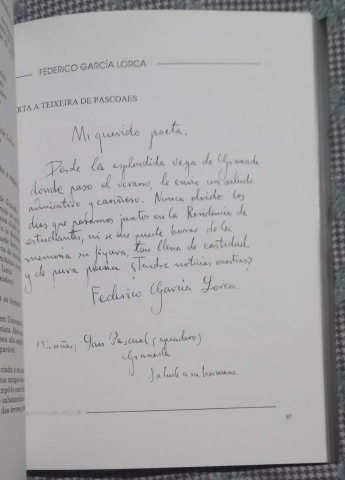 FEDERICO GARCÍA LORCA
RTA A TEIXEIRA DE PASCOAES
Mi querido poeta.
Desde la esplendida vega de Granada
donde paso el verano, le envio un saludo
admirativo y cariñoso. Nunca olvido los
dias que pasamos junto en la Residencia de
estudiantes, ni se me puede borrar de la
memoria su figura, tan llena de castidad
y de pura poesia ¿Tendre noticias vuestras?
Federico García Lorca.
Mis señas, San Pascual (apeadero)
Granada
Salude a su hermana
87